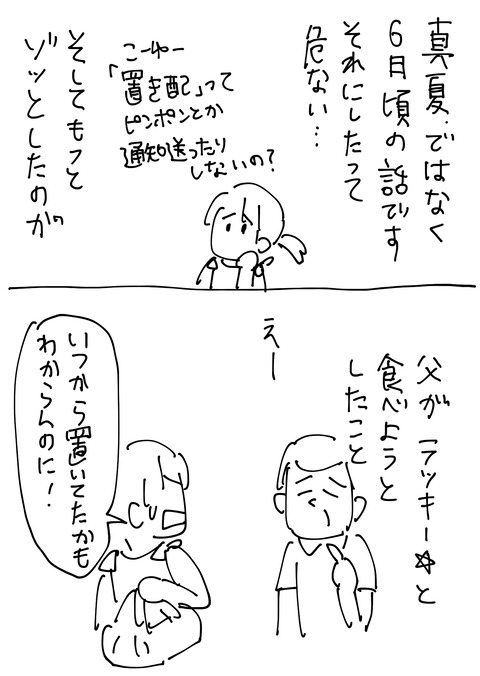 真夏ではなく
6月頃の話です
それにしたって
危ない…
こーゆー
「置き配」って
ピンポンとか
通知送ったり
しないの？
そしてもっと
ゾッとしたのが
父がラッキー☆と
食べようと
したこと
えー
いつから置いてたかも
わからんのに！